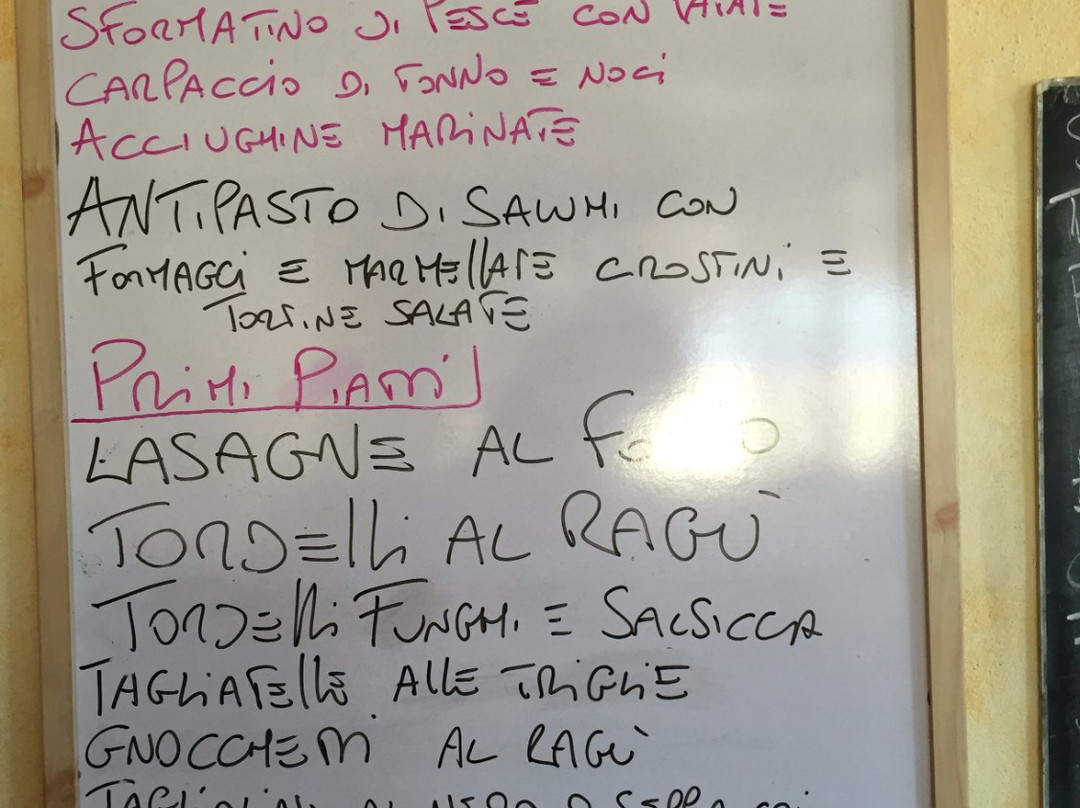 SFORMATINO DI PESCE CON PATATE
CARPACCIO DI TONNO E NOCI
ACCIUGHINE MARINATE
ANTIPASTO DI SALUMI CON
FORMAGGI E MARMELLATE CROSTINI E
TORTINE SALATE
PRIMI PIATTI
LASAGNE AL FORNO
TORDELLI AL RAGÙ
TORDELLI FUNGHI E SALSICCA
TAGLIATELLE ALLE TRIGLIE
GNOCCHETTI AL RAGÙ
TAGLIOLINI AL NERO DI SEPPIA